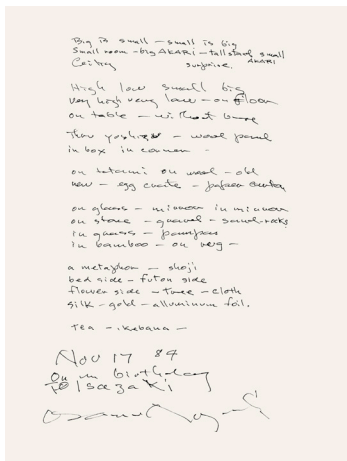 Big is small – small is big
Small room – big AKARI – tall stand small
Ceiling surprise. AKARI
High low small big
very high very low – on floor
on table – without base
Then – wood panel
in box in corner –
on tatami on wood – old
new – egg crate – paper
on glass – mirror in mirror
on stone – gravel – sand – rocks
in grass – pampas
in bamboo – on –
a metaphor – shoji
bed side – futon side
flower side – tree – cloth
silk – gold – alluminum foil.
tea – ikebana –
Nov 17 84
On my birthday
to Isozaki
Isamu Noguchi